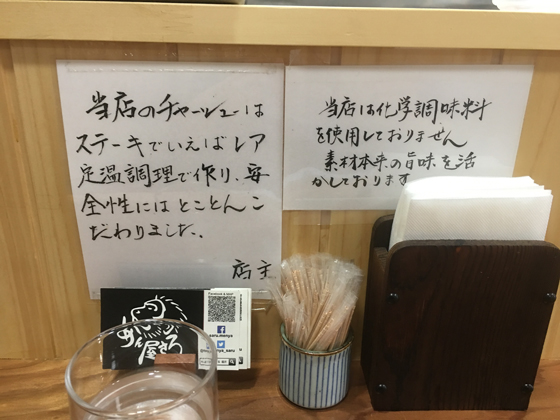 当店のチャーシューは
ステーキでいえばレア
定温調理で作り、安
全性にはとことんこ
だわりました。
店主
当店は化学調味料
を使用しておりません
素材本来の旨味を活
かしております
めん屋さる